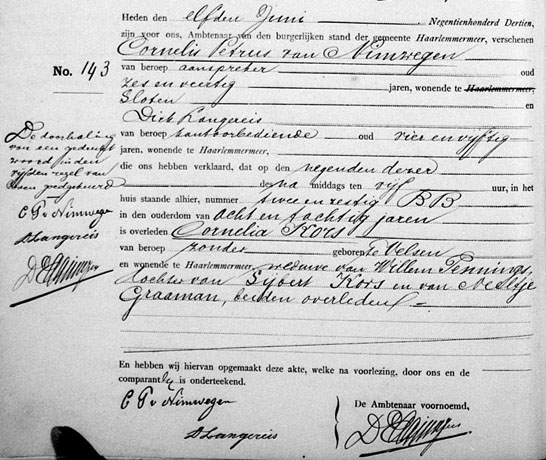 Heden den elfden Juni Negentienhonderd Dertien,
zijn voor ons, Ambtenaar van den burgerlijken stand der gemeente Haarlemmermeer, verschenen
Cornelis Petrus van Nimwegen
No. 143
van beroep aanspreker oud
zes en veertig jaren, wonende te Haarlemmermeer,
Sloten en
Dirk Langereis
van beroep kantoorbediende oud vier en vijftig
jaren, wonende te Haarlemmermeer,
die ons hebben verklaard, dat op den negenden dezer
des na middags ten vijf uur, in het
huis staande alhier, nummer twee en zestig B B
in den ouderdom van acht en tachtig jaren
is overleden Cornelia Kors
van beroep zonder geboren te Velsen
en wonende te Haarlemmermeer, weduwe van Willem Pennings,
dochter van Sijbert Kors en van Neeltje
Graaman, beiden overleden
De doorhaling
van een gedrukt
woord in den
vijfden regel van
boven goedgekeurd
C P v Nimwegen
D Langereis
En hebben wij hiervan opgemaakt deze akte, welke na voorlezing, door ons en de
comparanten is onderteekend.
C P v Nimwegen
D Langereis
De Ambtenaar voornoemd,